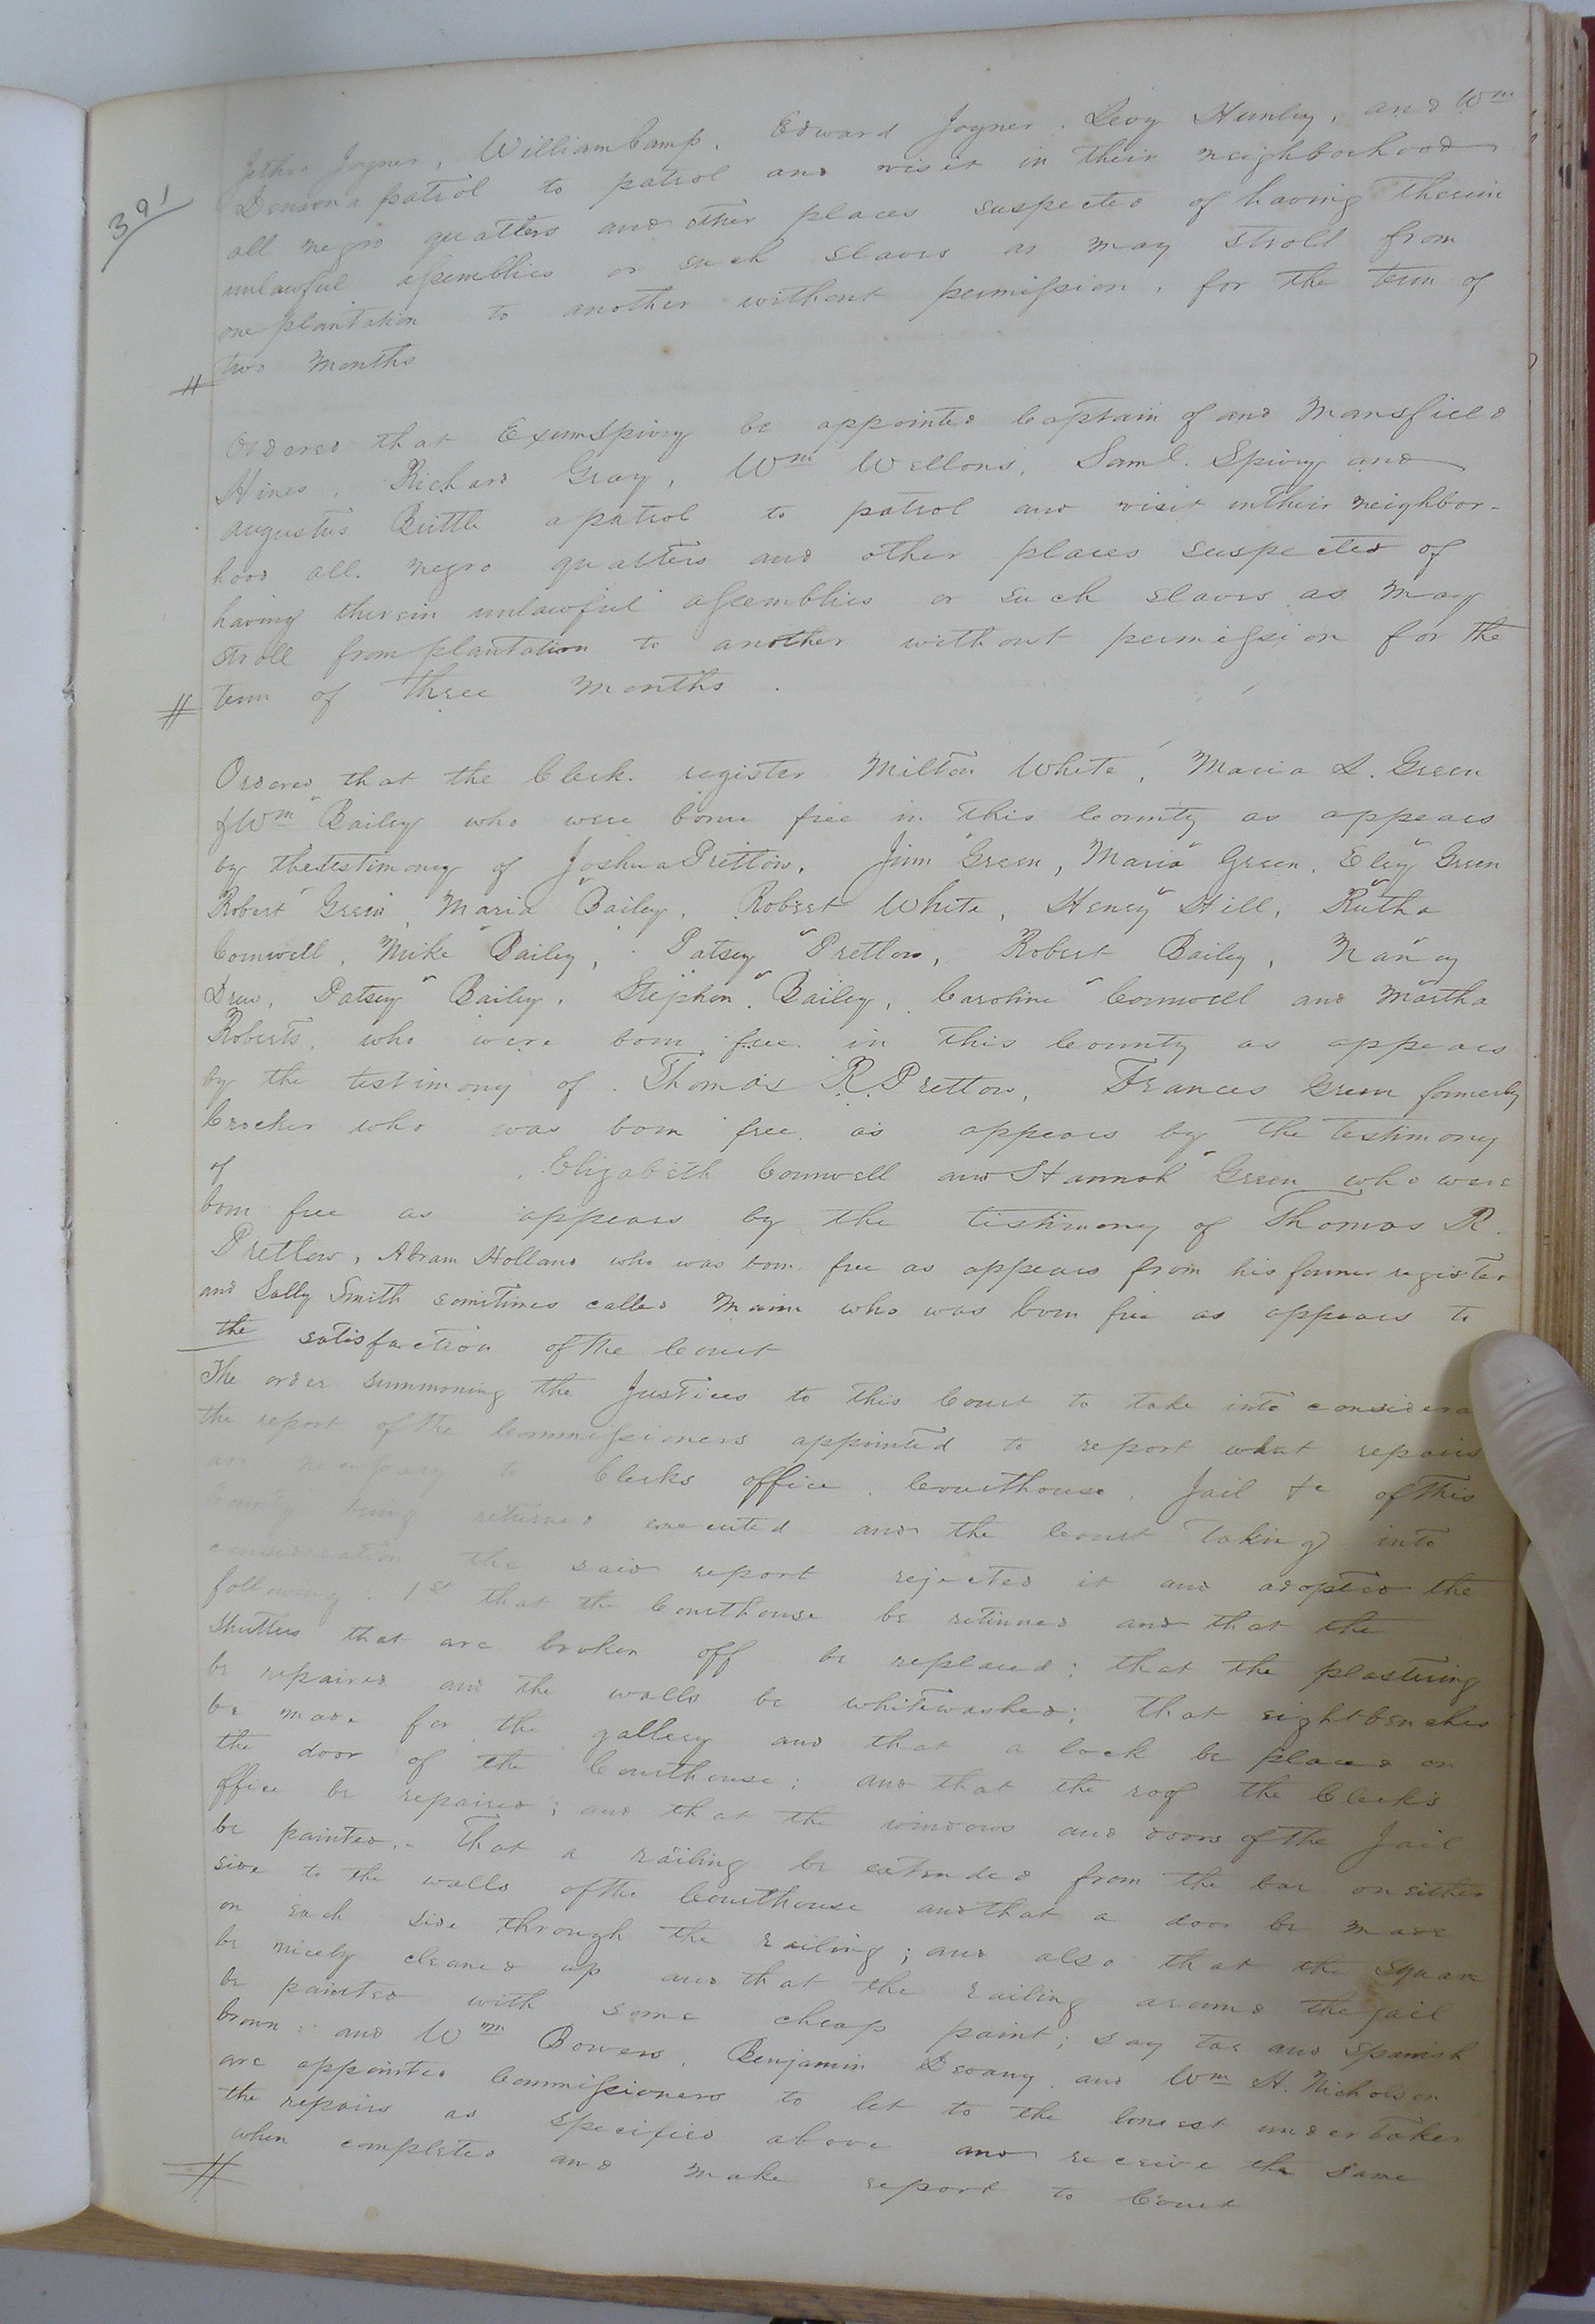 391
Jethro Joyner, William Camp, Edward Joyner, Levy Hunley, and Wm
Denson a patrol to patrol and visit in their neighborhood
all negro quatters and other places suspected of having therein
unlawful assemblies or such slaves as may stroll from
one plantation to another without permission, for the term of
two months
Ordered that Exum Spivey be appointed Captain of and Mansfield
Hines, Richard Gray, Wm Wellons, Saml. Spivy and
Augustus Brittle a patrol to patrol and visit in their neighbor-
hood all negro quatters and other places suspected of
having therein unlawful assemblies or such slaves as may
stroll from plantation to another without permission for the
term of three months.
Ordered that the Clerk register Milton White, Maria S. Green
& Wm Bailey who were born free in this County as appears
by the testimony of Joshua Pretlow, Jinn Green, Maria Green, Eley Green
Robert Green, Maria Bailey, Robert White, Henry Hill, Rutha
Cornwell, Mike Bailey, Patsey Pretlow, Robert Bailey, Nancy
Drew, Patsey Bailey, Stephen Bailey, Caroline Cornwell and Martha
Roberts, who were born free in this County as appears
by the testimony of Thomas R. Pretlow, Frances Green formerly
Crocker who was born free as appears by the testimony
of , Elizabeth Cornwell and Hannah Green who were
born free as appears by the testimony of Thomas R.
Pretlow, Abram Holland who was born free as appears from his former register
and Sally Smith sometimes called Mann who was born free as appears to
the satisfaction of the Court
The order summoning the Justices to this Court to take into considera
the report of the Commissioners appointed to report what repairs
are necessary to Clerks office, Courthouse, Jail &c of this
County being returned executed and the Court taking into
consideration the said report rejected it and adopted the
following: 1st that the Courthouse be retinned and that the
shutters that are broken off be replaced; that the plastering
be repaired and the walls be whitewashed; that eight benches
be made for the gallery and that a lock be placed on
the door of the Courthouse; and that the roof the Clerk's
office be repaired; and that the windows and doors of the Jail
be painted.- That a railing be extended from the bar on either
side to the walls of the Courthouse and that a door be made
on each side through the railing; and also that the square
be nicely cleaned up and that the railing around the jail
be painted with some cheap paint; say tar and Spanish
brown; and Wm Bowers, Benjamin Devany and Wm H. Nicholson
are appointed Commissioners to let to the lowest undertaker
the repairs as specified above and receive the same
when completed and make report to Court